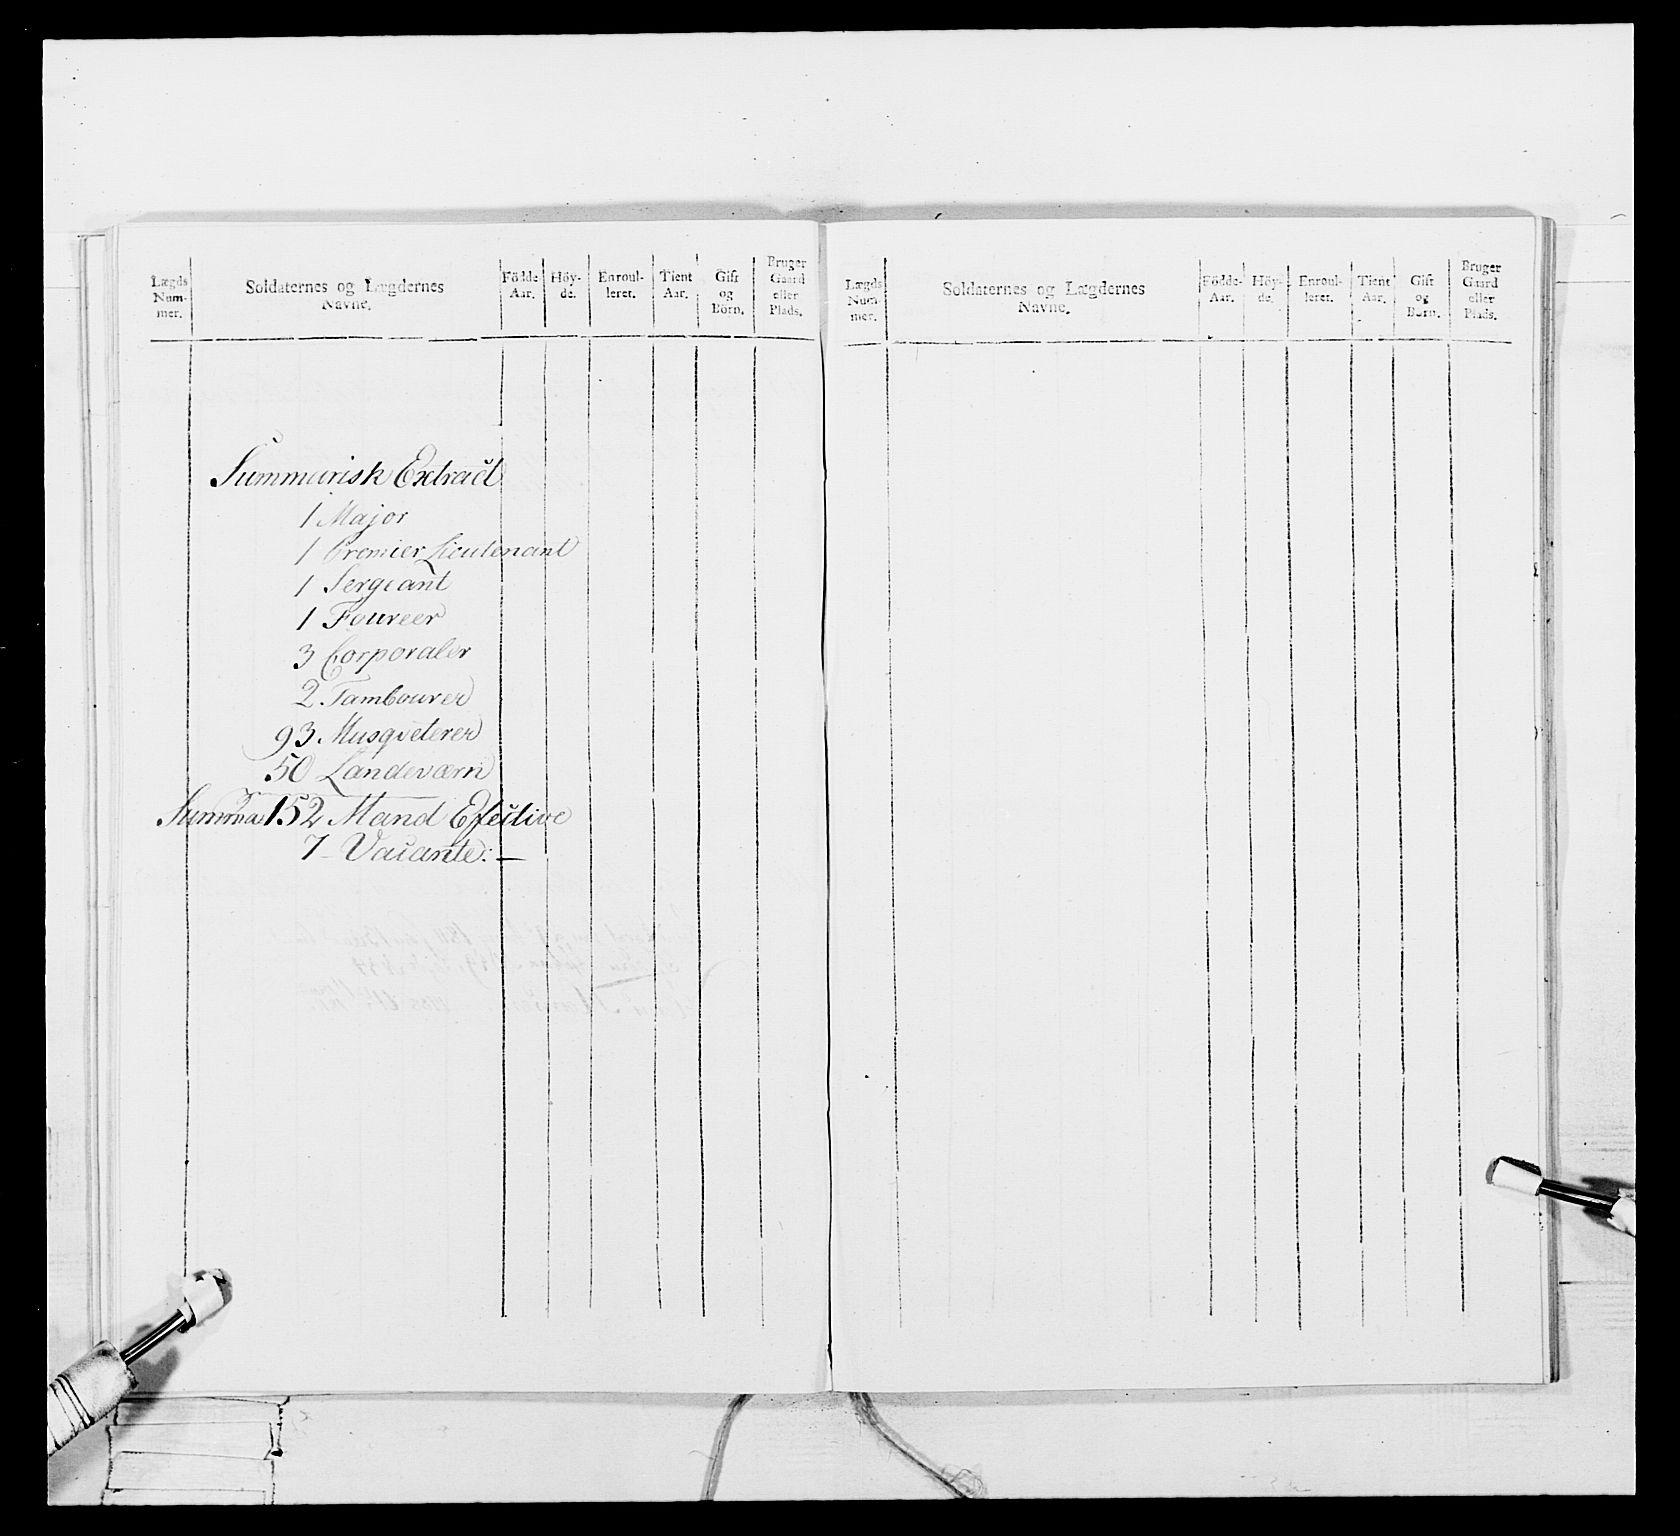 Lægds Num- mer.
Soldaternes og Lægdernes Navne.
Födde- Aar.
Höy- de.
Enroul- leret.
Tient Aar.
Gift og Börn.
Bruger Gaard eller Plads.
Summarisk Extract
1 Major
1 Premier Lieutenant
1 Sergeant
1 Foureer
3 Corporaler
2 Tambourer
93 Musqveterer
50 Landeværn
Summa 152 Mand Effective
7 - Vacante: -
Lægds Num- mer.
Soldaternes og Lægdernes Navne.
Födde- Aar.
Höy- de.
Enroul- leret.
Tient Aar.
Gift og Börn.
Bruger Gaard eller Plads.